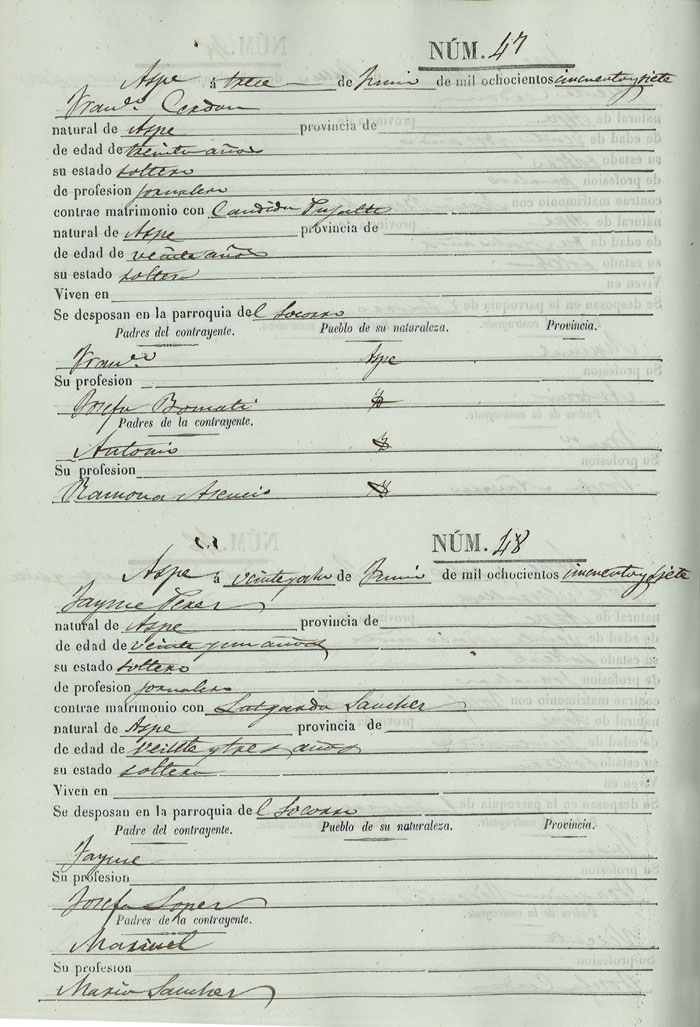 NÚM. 47
Aspe á trece de Junio de mil ochocientos cincuenta y siete
Fran.co Cerdan
natural de Aspe provincia de
de edad de treinta años
su estado soltero
de profesion jornalero
contrae matrimonio con Candida Pujalte
natural de Aspe provincia de
de edad de veinte años
su estado soltera
Viven en
Se desposan en la parroquia del Socorro
Padres del contrayente. Pueblo de su naturaleza. Provincia.
Fran.co Aspe
Su profesion
Josefa Bomati
Padres de la contrayente.
Antonio
Su profesion
Ramona Asencio
NÚM. 48
Aspe á veinteyocho de Junio de mil ochocientos cincuenta y siete
Jayme Perer
natural de Aspe provincia de
de edad de veinte y un años
su estado soltero
de profesion jornalero
contrae matrimonio con Lutgarda Sancher
natural de Aspe provincia de
de edad de veinte y tres años
su estado soltera
Viven en
Se desposan en la parroquia del Socorro
Padre del contrayente. Pueblo de su naturaleza. Provincia.
Jayme
Su profesion
Josefa Loper
Padres de la contrayente.
Manuel
Su profesion
Maria Sancher